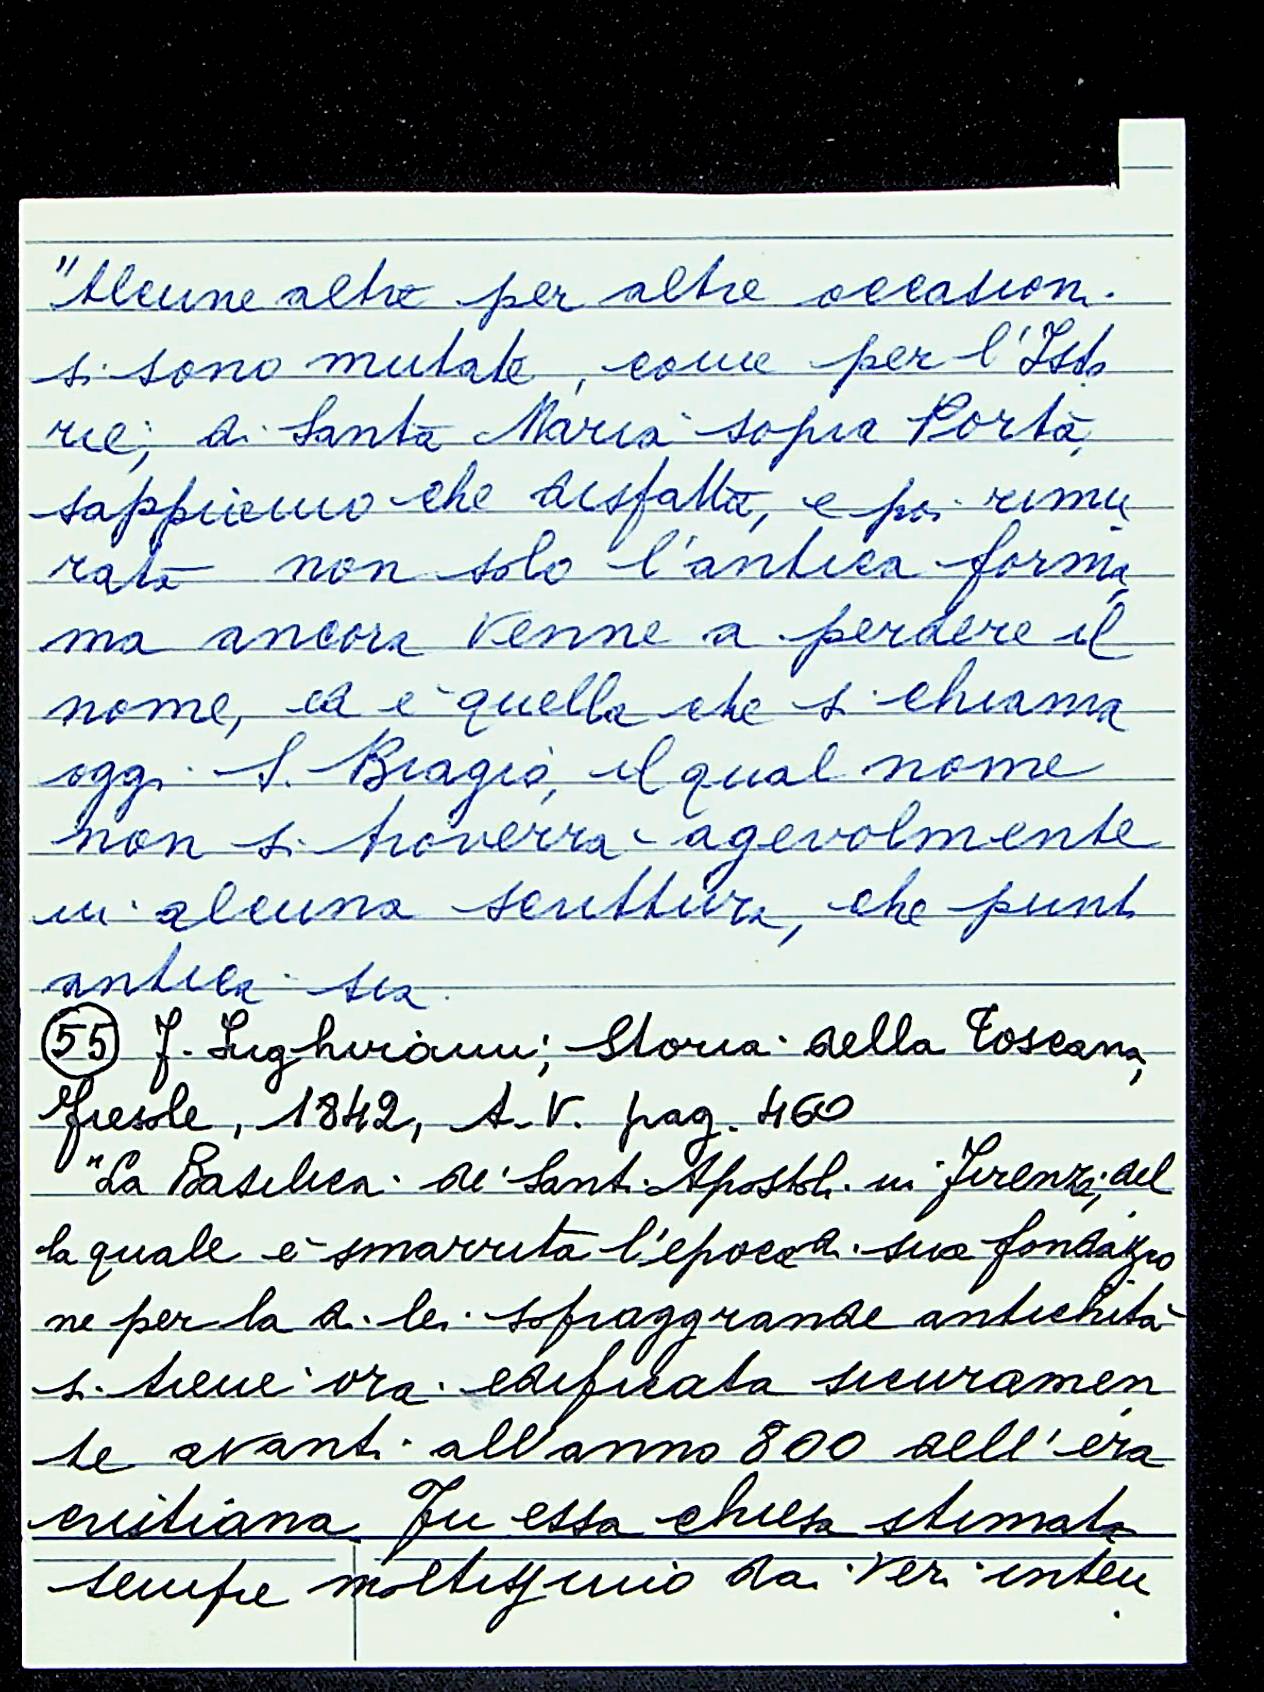 "Alcune altre per altre occasioni
si sono mutate, come per l'Isto
rie; di Santa Maria sopra Porta,
sappiamo che disfatta, e poi rimu
rata non solo l'antica forma,
ma ancora venne a perdere il
nome, ed è quella che si chiama
oggi S. Biagio, il qual nome
non si troverrà agevolmente
in alcuna scrittura, che punto
antica sia.
(55) F. Inghirami; Storia della Toscana,
Fiesole, 1842, t. V. pag. 460
"La Basilica dei Santi Apostoli in Firenze, del
la quale è smarrita l'epoca di sua fondazio
ne per la di lei sopraggrande antichità
si tiene ora edificata sicuramen
te avanti all'anno 800 dell'era
cristiana. Fu essa chiesa stimata
sempre moltissimo dai veri inten